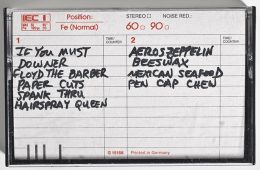 IEC I
Position:
Fe (Normal)
STEREO
60 90
NOISE RED.:
1
TIME/COUNTER
2
TIME/COUNTER
IF YOU MUST
DOWNER
FLOYD THE BARBER
PAPER CUTS
SPANK THRU
HAIRSPRAY QUEEN
AEROSZEPPELIN
BEESWAX
MEXICAN SEAFOOD
PEN CAP CHEW
Printed in Germany